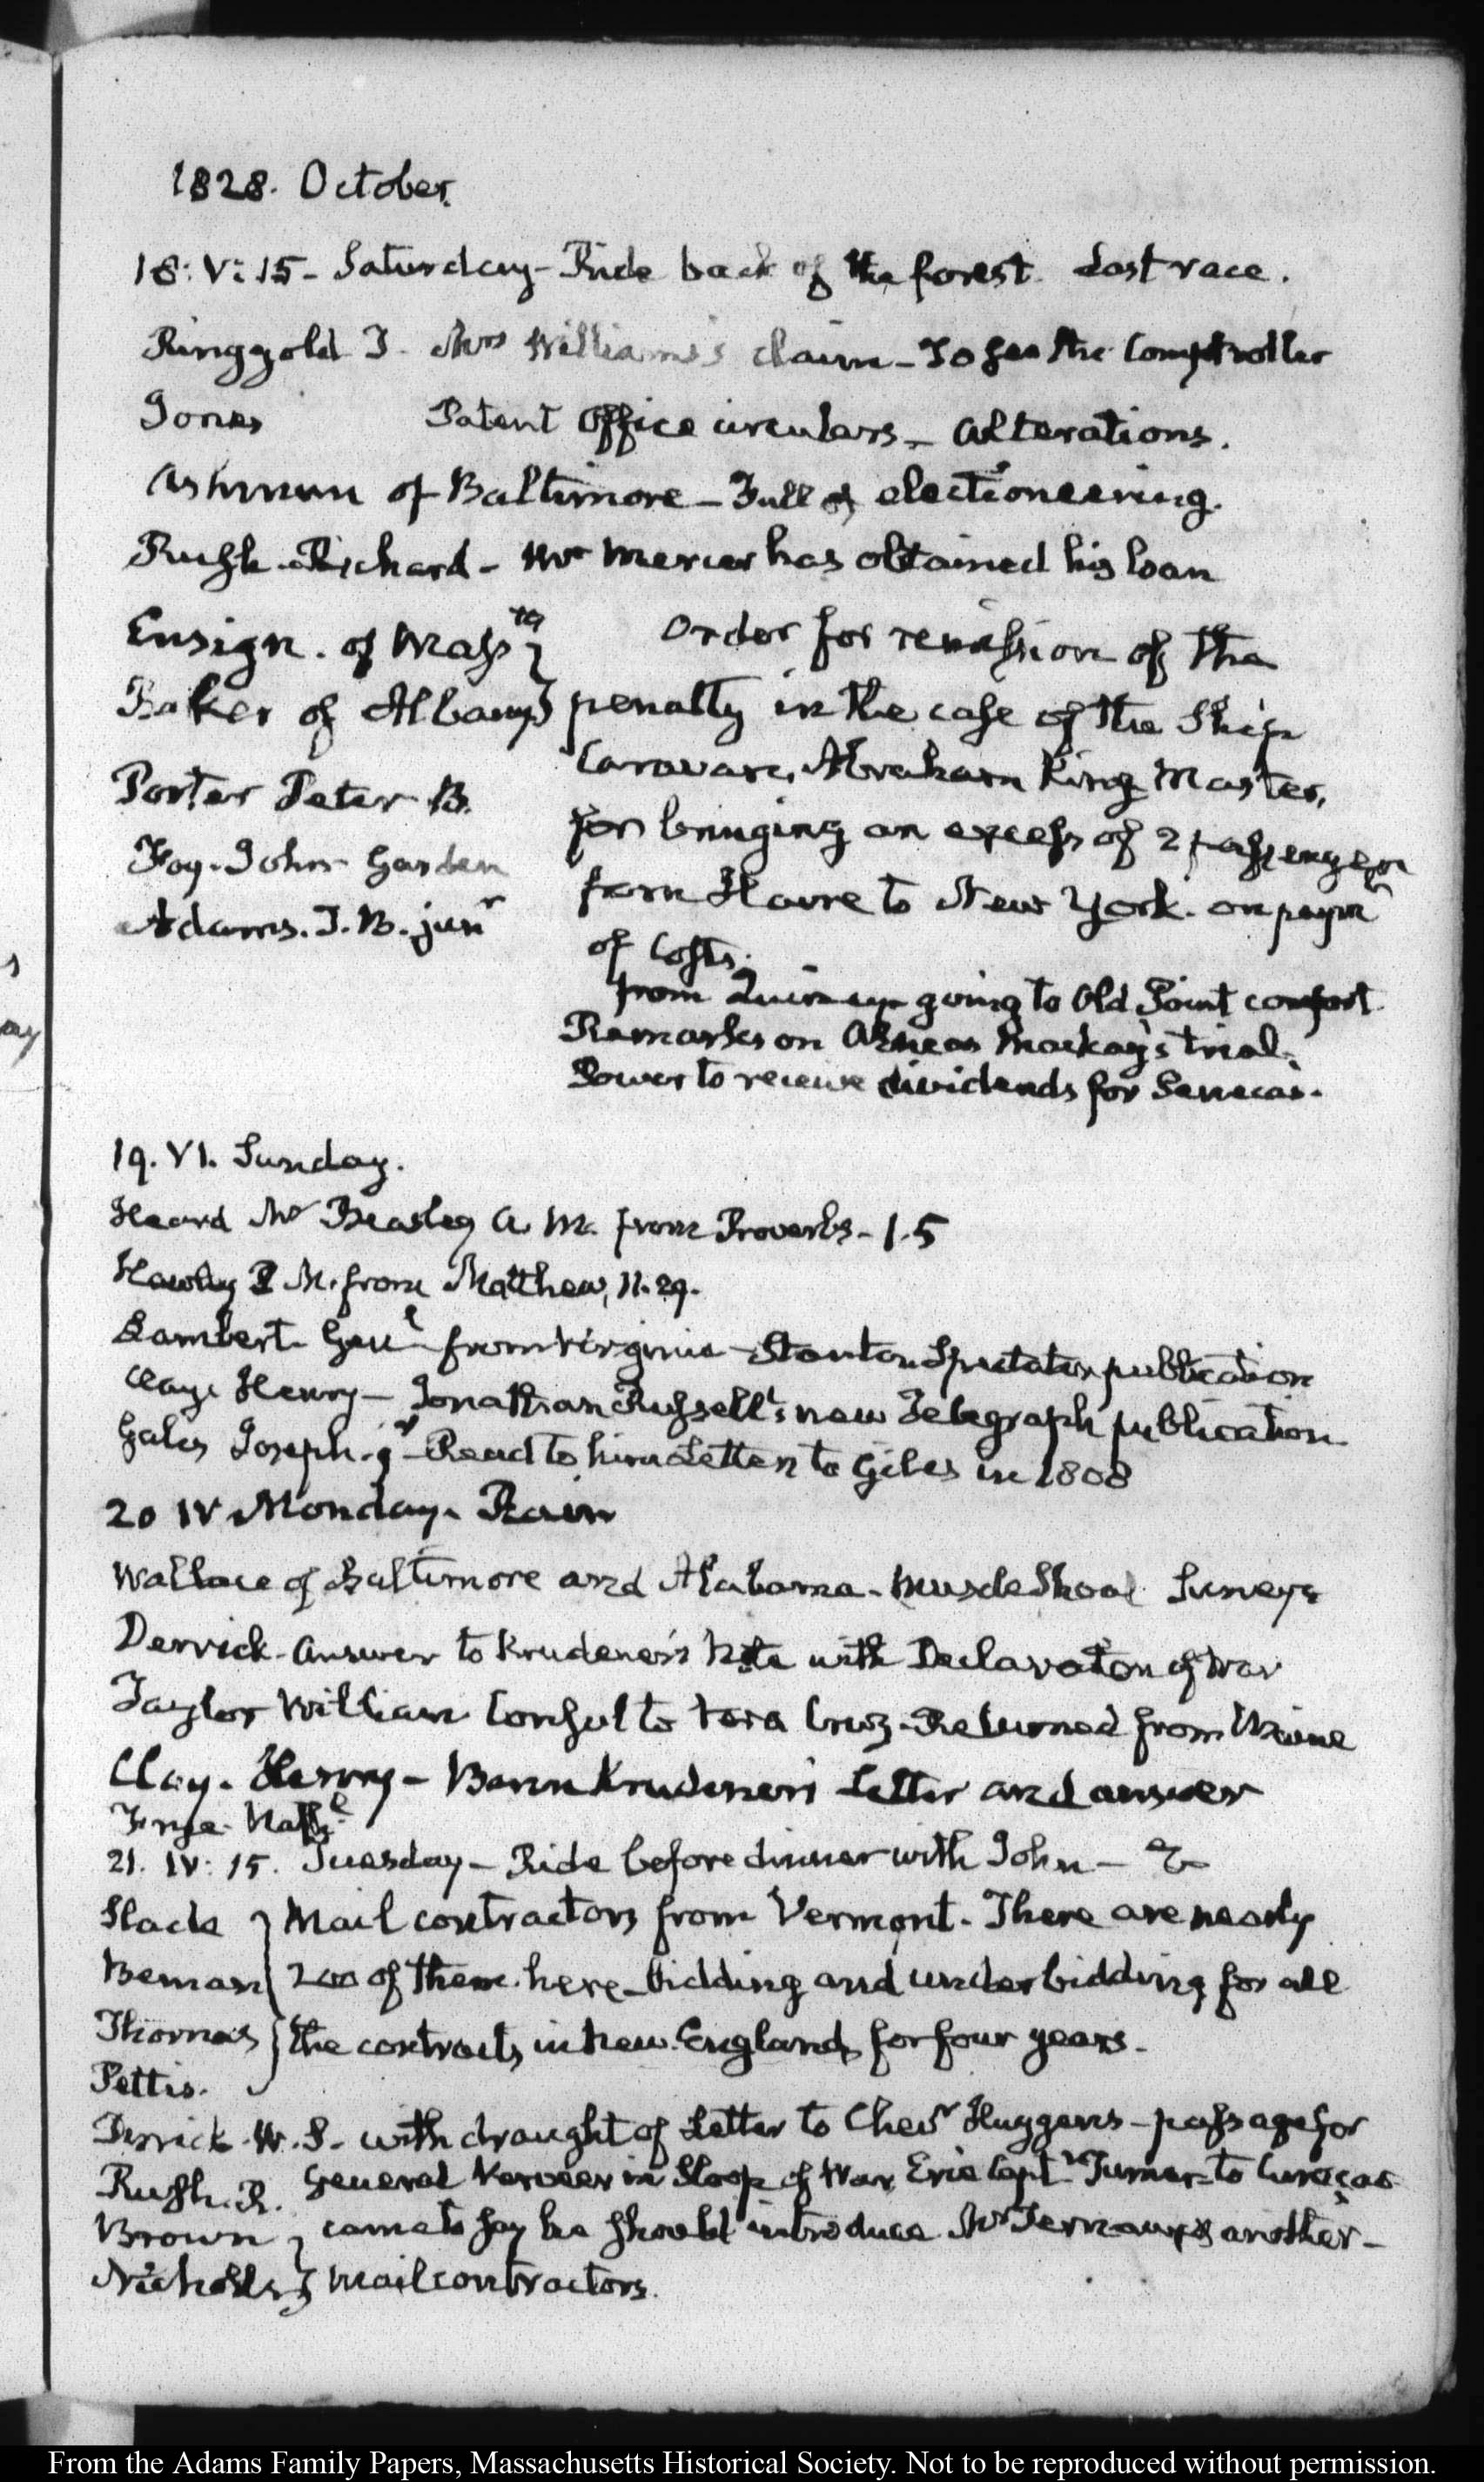 1828. October.
18: V: 15 - Saturday - Ride back of the forest. Last race.
Ringgold T. Mrs Williams's claim - To see the Comptroller
Jones Patent Office circulars - alterations.
Ashmun of Baltimore - Full of electioneering.
Rush Richard - Mr Mercer has obtained his loan
Ensign. of Massts } Order for remission of the
Baker of Albany } penalty in the case of the Ship
Porter Peter B. Caravan, Abraham King Master,
for bringing an excess of 2 passengers
Foy. John Garden
from Havre to New York. on paymt
Adams. T. B. junr
of Costs.
from Quincy going to Old Point comfort
Remarks on Aeneas Mackay's trial.
Power to receive dividends for Senecas.
19. VI. Sunday.
Heard Mr Beasley A. M. from Proverbs - 1.5
Hawley P M. from Matthew, 11.29.
Lambert. Genl from Virginia - Stanton Spectator publication
Clay. Henry - Jonathan Russell's new Telegraph publication
Gales Joseph. jr - Read to him Letters to Giles in 1808
20 IV Monday. Rain
Wallace of Baltimore and Alabama - Muscle Shoal Surveys
Derrick - Answer to Krudener's Note with Declaration of War
Taylor William Consul to Vera Cruz - Returned from Maine
Clay. Henry - Baron Krudener's Letter and answer
Frye. Nathl
21. IV: 15. Tuesday - Ride before dinner with John - &
Slade } Mail contractors from Vermont. There are nearly
Beman } 200 of them here - bidding and underbidding for all
Thomas } the contracts in New England for four years.
Pettis.
Derrick. W. S. - with draught of Letter to Chevr Huygens - passage for
General Verveer in Sloop of War Erie Captn Turner to Curaçao
Rush. R.
came to say he should introduce Mr Ternaux & another -
Brown }
Nicholls } Mail contractors.
From the Adams Family Papers, Massachusetts Historical Society. Not to be reproduced without permission.